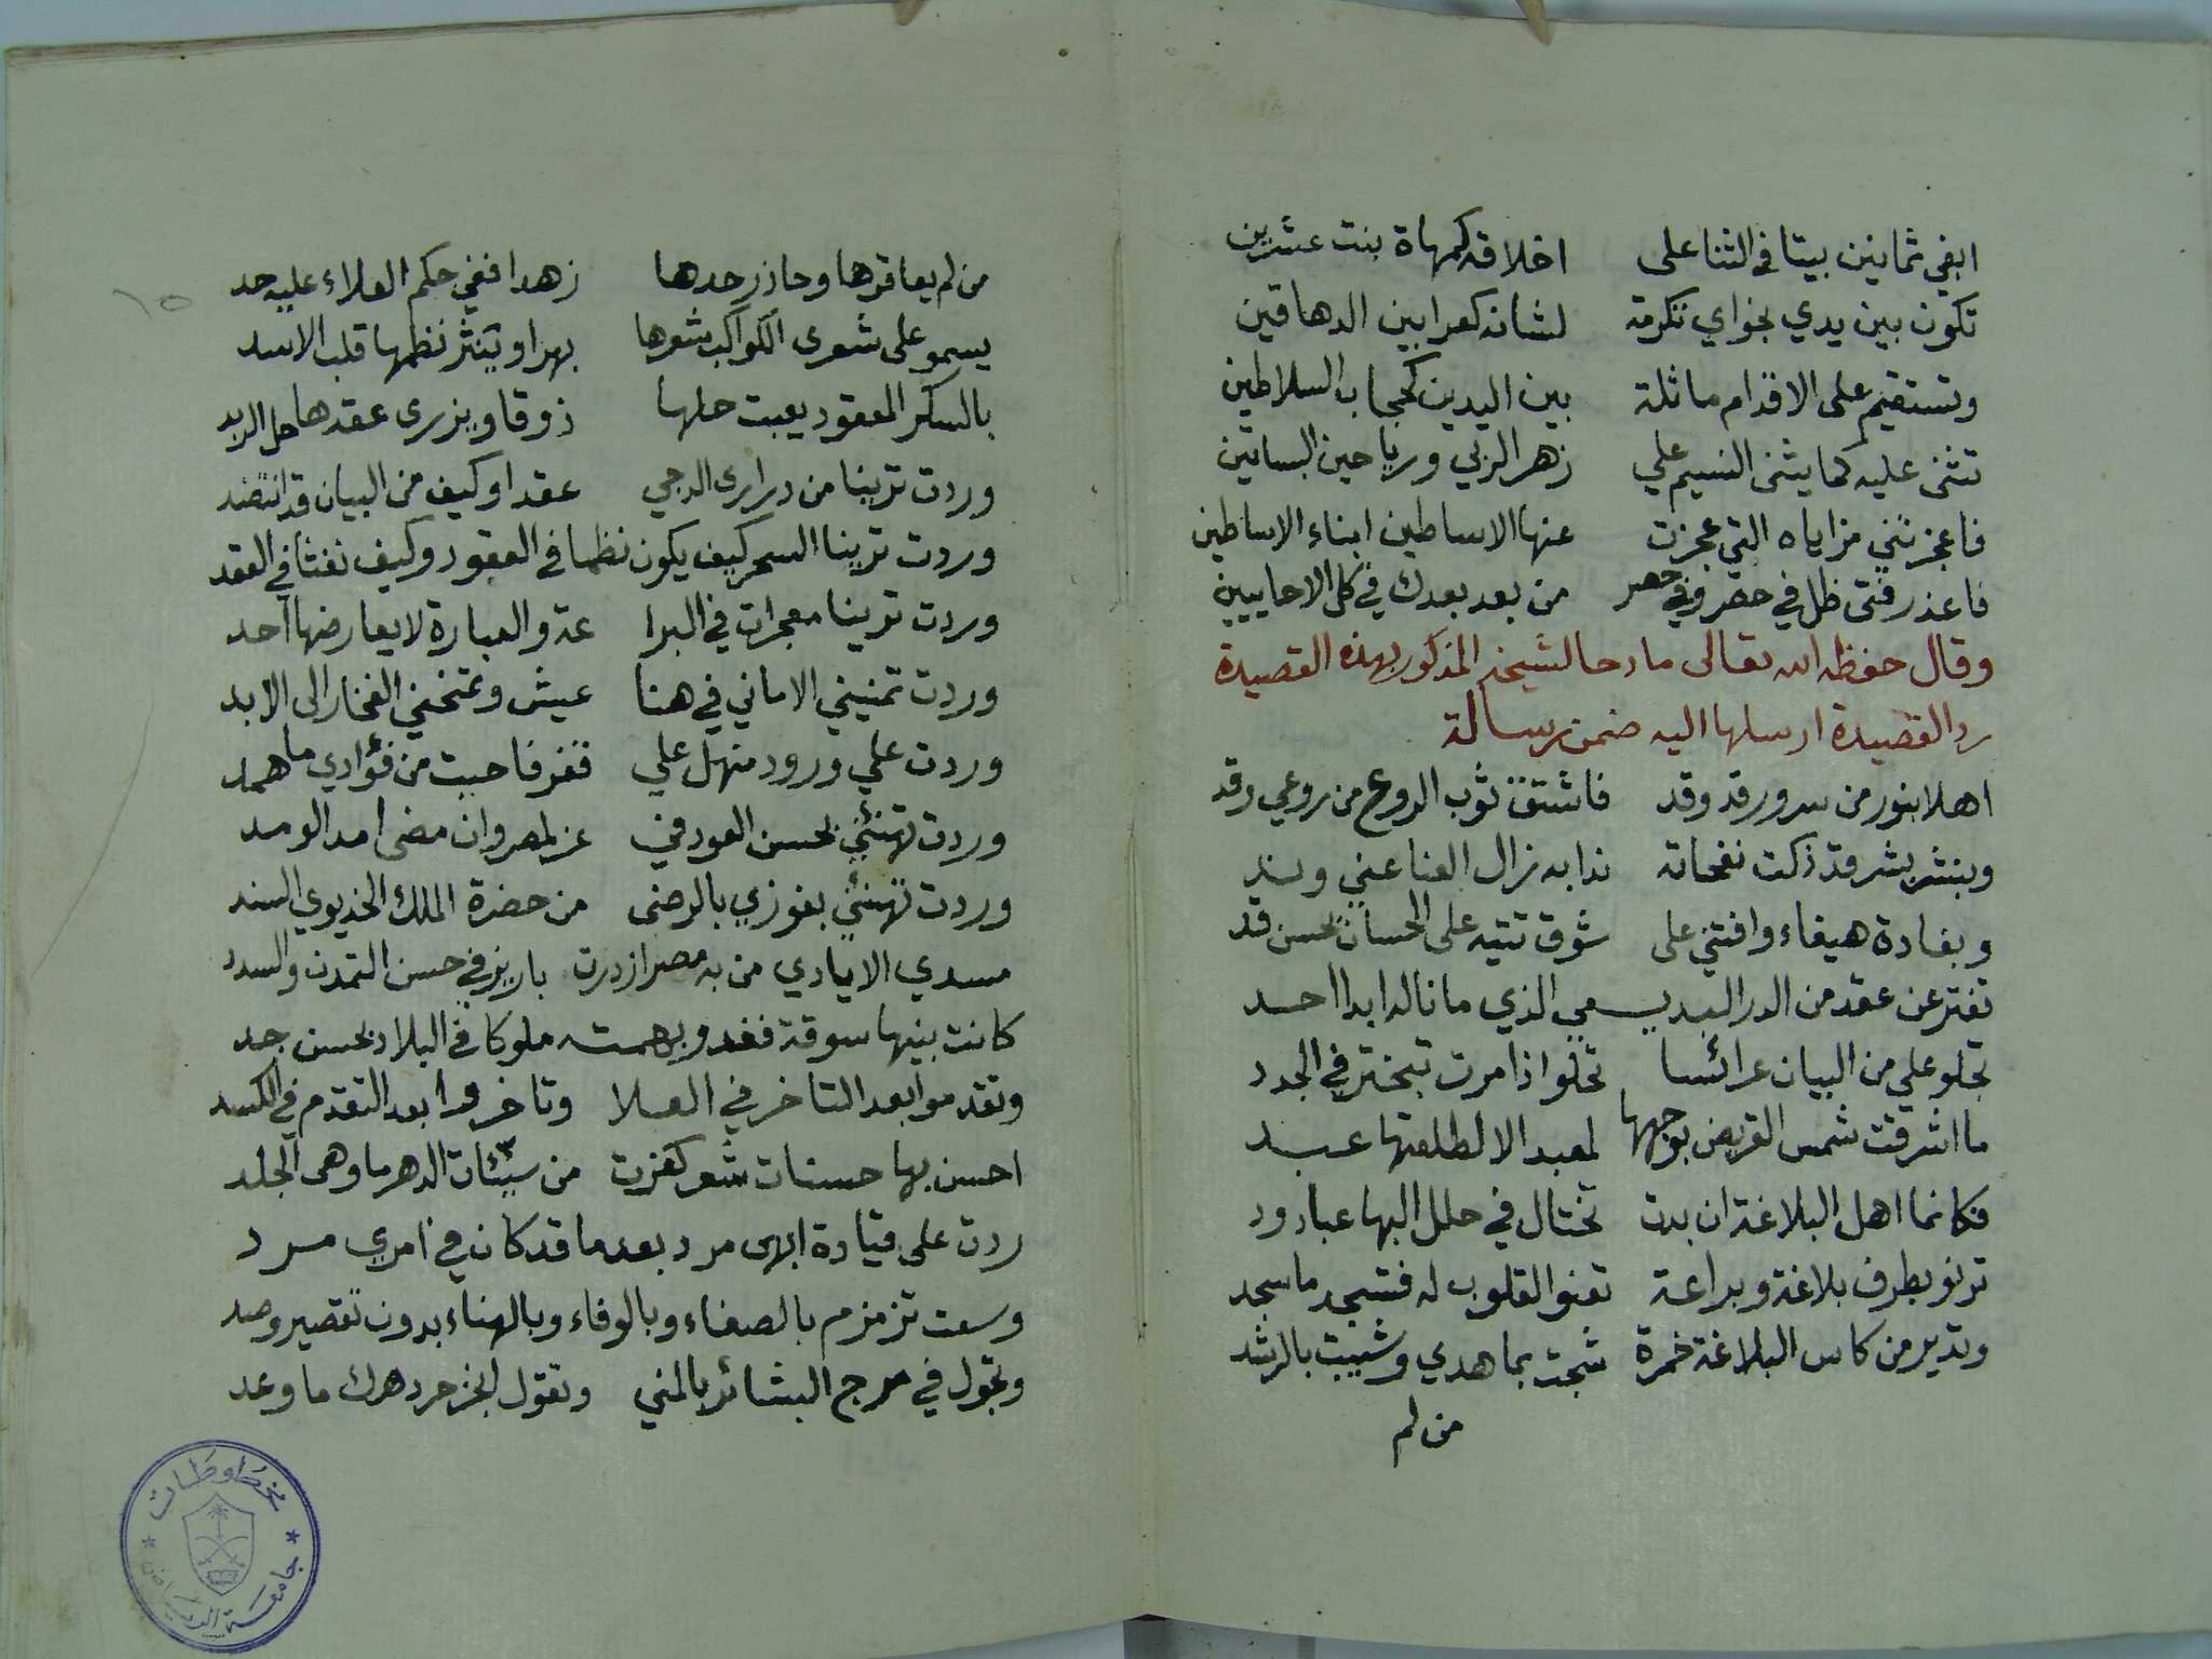 ابغي ثمانين بيتا في الثنا على اخلاقه كمهاة بنت عشرين
تكون بين يدي نجواي تكرمة لشانه كعرابين الدهاقين
وتستقيم على الاقدام ماثلة بين اليدين كحجاب السلاطين
تثنى عليه كما يثنى النسيم علي زهر الربي ورياحين البساتين
فاعجزتني مزاياه التي عجزت عنها الاساطين ابناء الاساطين
فاعذر فتى ظل في حصر وفي حصر من بعد بعدك في كل الاحايين
وقال حفظه الله تعالى مادحا لشيخه المذكور بهذه القصيدة
رد القصيدة ارسلها اليه ضمن رسالة
اهلا بنور من سرور قد وقد فاشتق ثوب الروع من روعي وقد
وبنشر بشر قد ذكت نفحاته ندا به زال العنا عني وند
وبغادة هيفاء وافتني على شوق تتيه على الحسان بحسن قد
تفتر عن عقد من الدر البديـ ـعي الذي ما ناله ابدا احد
تجلو علي من البيان عرائسا تحلو اذا مرت تبختر في الجدد
ما اشرقت شمس القريض بوجهها لمعبد الا لطلعتها عبد
فكانما اهل البلاغة ان بدت تختال في حلل البها عباد ود
ترنو بطرف بلاغة وبراعة تعنو القلوب له فتسجد ما سجد
وتدير من كاس البلاغة خمرة شجت بما هدي وشيبت بالرشد
من لم
من لم يعاقرها وحاذر حدها زهدا ففي حكم العلاء عليه حد
يسمو على شعرى الكواكب شعرها بهرا وينثر نظمها قلب الاسد
بالسكر المعقود يعبث حلها ذوقا ويزرى عقدها حل الزبد
وردت ترينا من درارى الدجي عقدا وكيف من البيان قد انتضد
وردت ترينا السحر كيف يكون نظما في العقود وكيف نفثا في العقد
وردت ترينا معجزات في البرا عة والعبارة لا يعارضها احد
وردت تمنيني الاماني في هنا عيش وتمنحني الفخار الى الابد
وردت علي ورود منهل علي قفر فاحيت من فؤادي ما همد
وردت تهنئني بحسن العود في عز لمصر وان مضى امد الومد
وردت تهنئني بفوزي بالرضى من حضرة الملك الخديوي السند
مسدي الايادي من به مصر ازدرت باريز في حسن التمدن والسدد
كانت بنيها سوقة فغدو بهمته ملوكا في البلاد بحسن جد
وتقدموا بعد التاخر في العلا وتاخروا بعد التقدم في الكسد
احسن بها حسنات شعر كفرت من سيئات الدهر ما وهى الجلد
ردت على قيادة ابهى مرد بعد ما قد كان في امري مرد
وسعت تزمزم بالصفاء وبالوفاء وبالهناء بدون تقصير وصد
وتجول في مرج البشائر بالمني وتقول انجز حر دهرك ما وعد
١٥
مخطوطات
جامعة الرياض